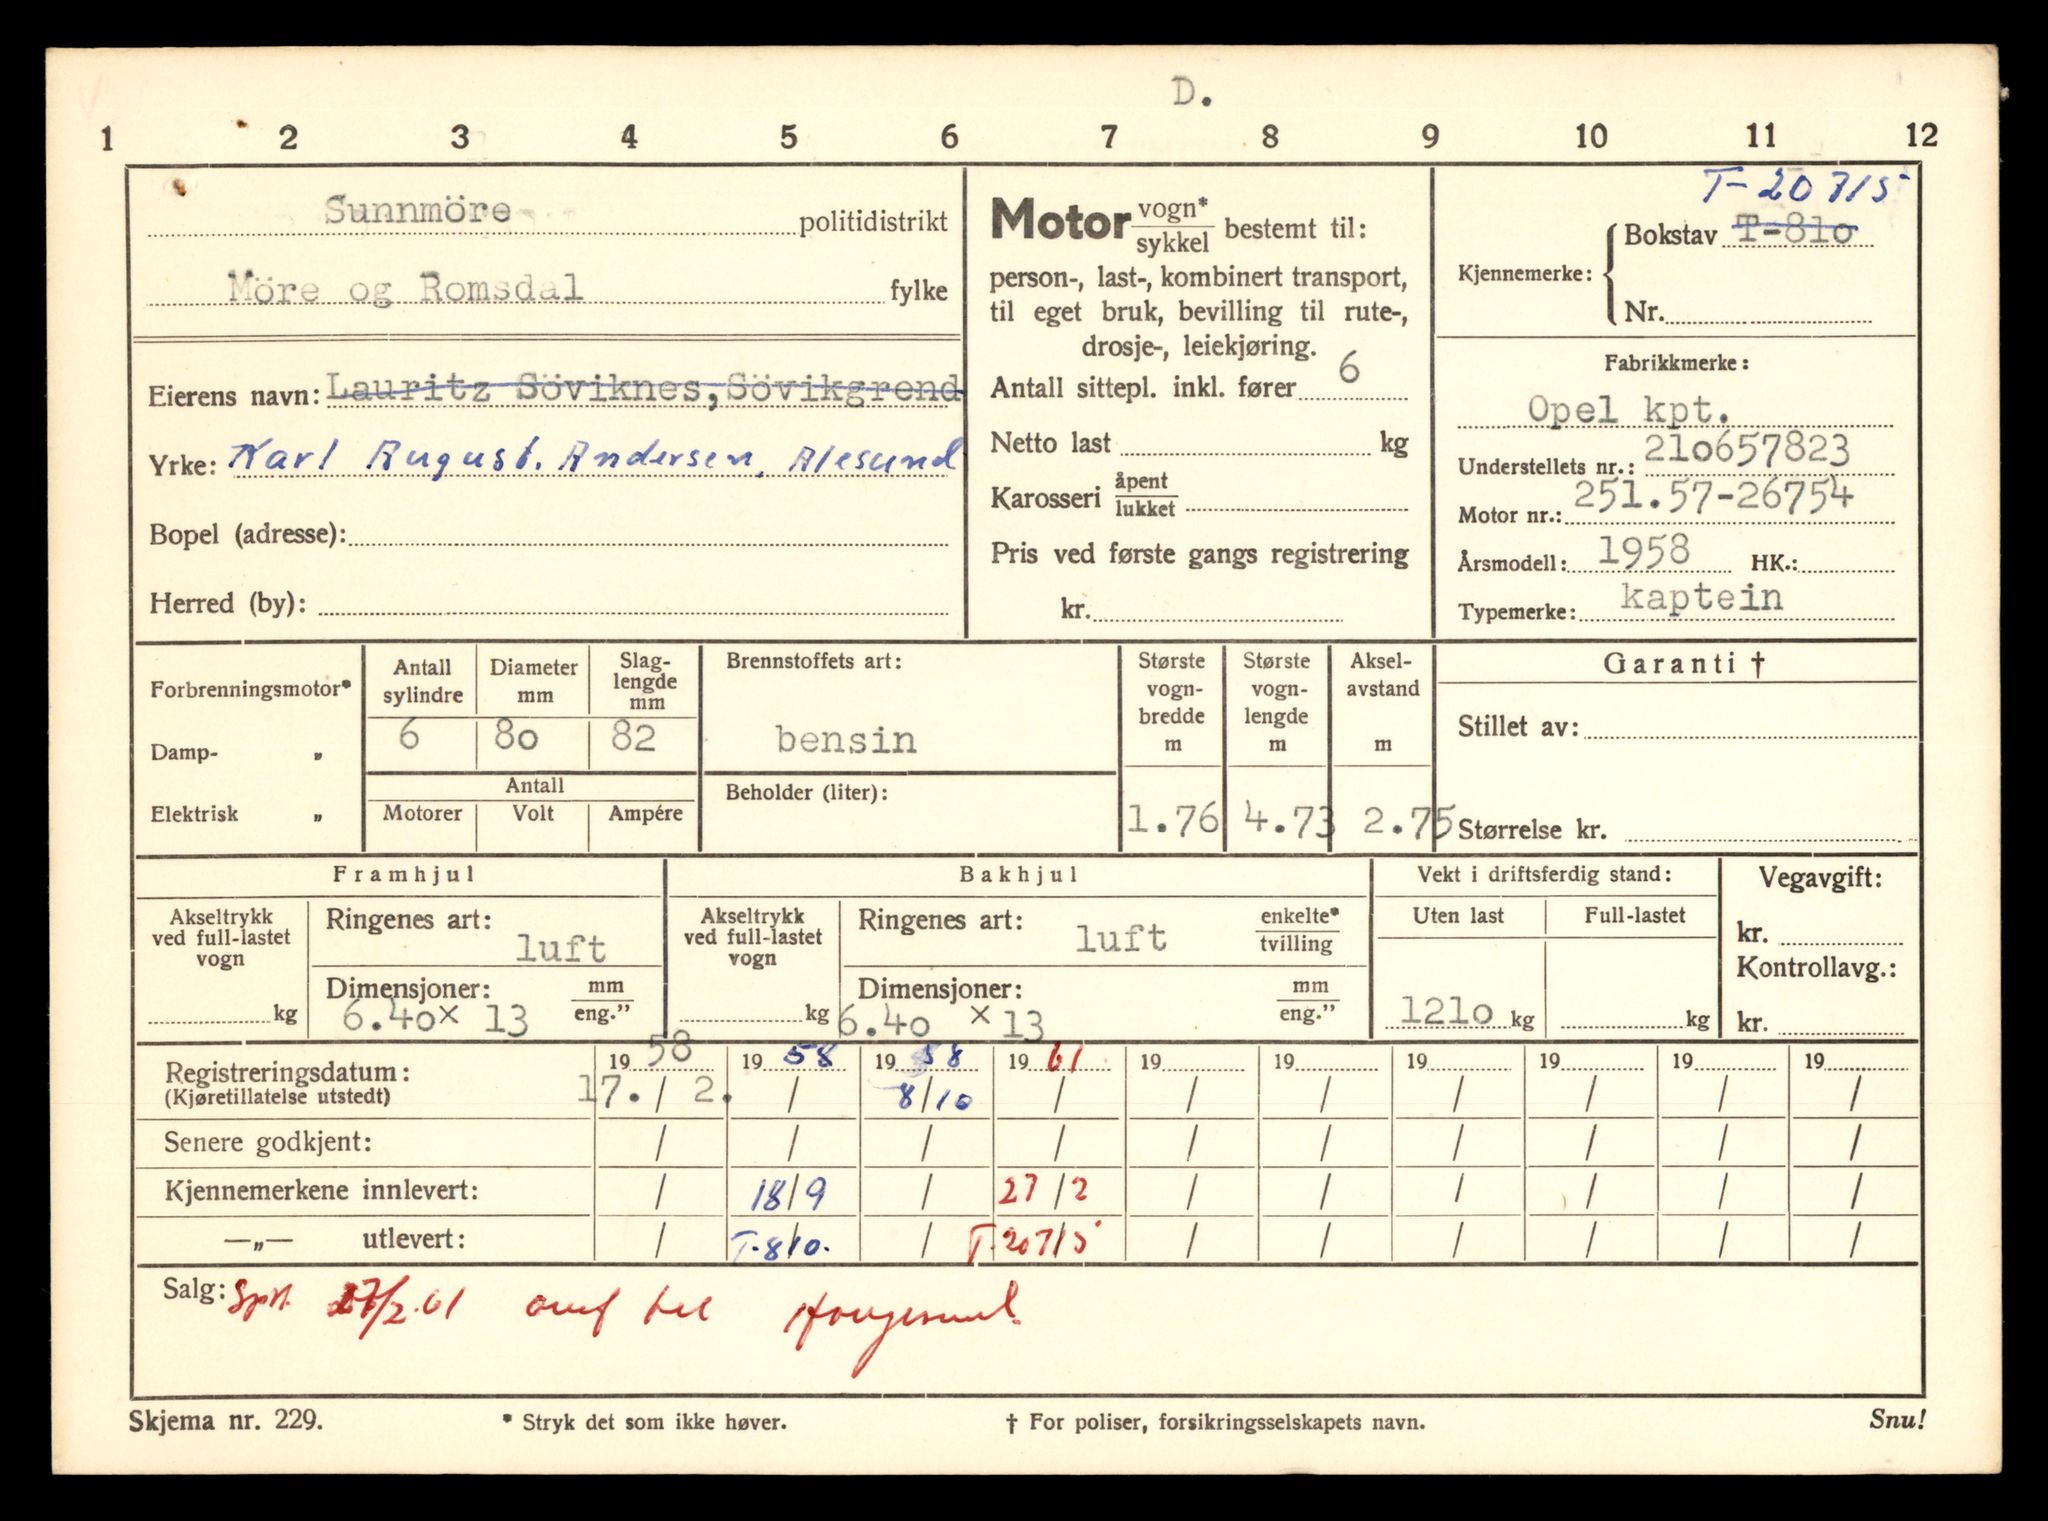 D.
1 2 3 4 5 6 7 8 9 10 11 12
Sunnmöre politidistrikt
Möre og Romsdal fylke
Eierens navn: Lauritz Söviknes, Sövikgrend
Yrke: Karl August. Andersen, Alesund
Bopel (adresse):
Herred (by):
Motor vogn* sykkel bestemt til:
person-, last-, kombinert transport,
til eget bruk, bevilling til rute-,
drosje-, leiekjøring.
Antall sittepl. inkl. fører 6
Netto last kg
Karosseri åpent lukket
Pris ved første gangs registrering
kr.
T-20715
Kjennemerke: Bokstav T-810
Nr.
Fabrikkmerke:
Opel kpt.
Understellets nr.: 210657823
Motor nr.: 251.57-26754
Årsmodell: 1958 HK.:
Typemerke: kaptein
Forbrenningsmotor*
Damp- „
Elektrisk „
Antall sylindre
6
Diameter mm
80
Slag- lengde mm
82
Antall
Motorer Volt Ampére
Brennstoffets art:
bensin
Beholder (liter):
Største vogn- bredde m
1.76
Største vogn- lengde m
4.73
Aksel- avstand m
2.75
Garanti †
Stillet av:
Størrelse kr.
Framhjul
Akseltrykk ved full-lastet vogn
kg
Ringenes art:
luft
Dimensjoner: mm eng.”
6.40 x 13
Bakhjul
Akseltrykk ved full-lastet vogn
kg
Ringenes art: enkelte* tvilling
luft
Dimensjoner: mm eng.”
6.40 x 13
Vekt i driftsferdig stand:
Uten last Full-lastet
1210 kg kg
Vegavgift:
kr.
Kontrollavg.:
kr.
Registreringsdatum: 19 58 19 58 19 58 19 61 19 19 19 19 19 19
(Kjøretillatelse utstedt) 17. / 2. / 8/10 / / / / / / /
Senere godkjent: / / / / / / / / / /
Kjennemerkene innlevert: / 18/9 / 27/2 / / / / / /
—„— utlevert: / T-810. / T-20715 / / / / / /
Salg: 27/2.61 til
Skjema nr. 229. * Stryk det som ikke høver. † For poliser, forsikringsselskapets navn. Snu!